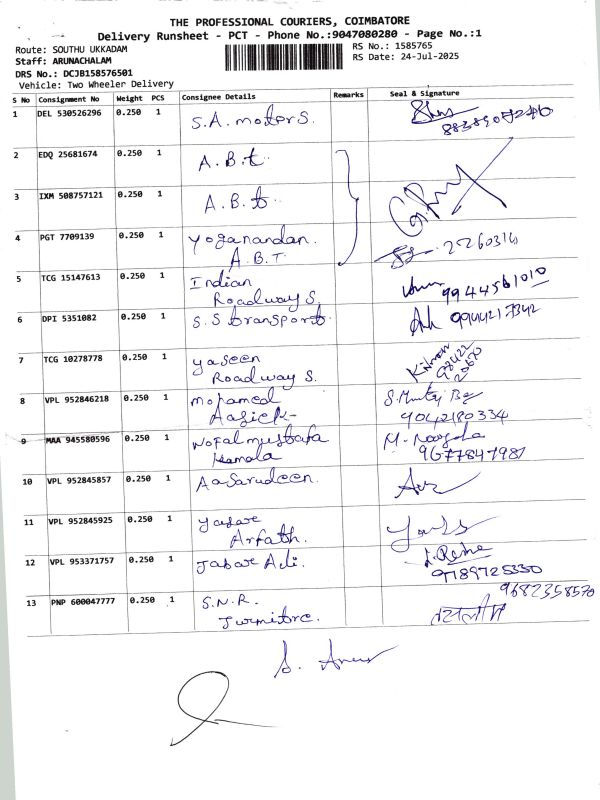 THE PROFESSIONAL COURIERS, COIMBATORE
Delivery Runsheet - PCT - Phone No.:9047080280 - Page No.:1
Route: SOUTHU UKKADAM
RS No.: 1585765
Staff: ARUNACHALAM
RS Date: 24-Jul-2025
DRS No.: DCJB158576501
Vehicle: Two Wheeler Delivery
S No Consignment No Weight PCS Consignee Details Remarks Seal & Signature
1 DEL 530526296 0.250 1 S.A. motors.
2 EDQ 25681674 0.250 1 A.B.t.
3 IXM 508757121 0.250 1 A.B.t.
4 PGT 7709139 0.250 1 yoganandan.
A.B.T.
5 TCG 15147613 0.250 1 Indian
Roadways. 9944561010
6 DPI 5351082 0.250 1 S.S transports. 9944217342
7 TCG 10278778 0.250 1 yaseen
Roadways. 98422
20670
8 VPL 952846218 0.250 1 mohamed
Aasick 9042180334
9 MAA 945580596 0.250 1 Nofal mustafa
Kamala 9677847981
10 VPL 952845857 0.250 1 Aasarudeen.
11 VPL 952845925 0.250 1 yasare
Arfath.
12 VPL 953371757 0.250 1 Jabar Ali. 9789725330
13 PNP 600047777 0.250 1 S.N.R. 9682358570